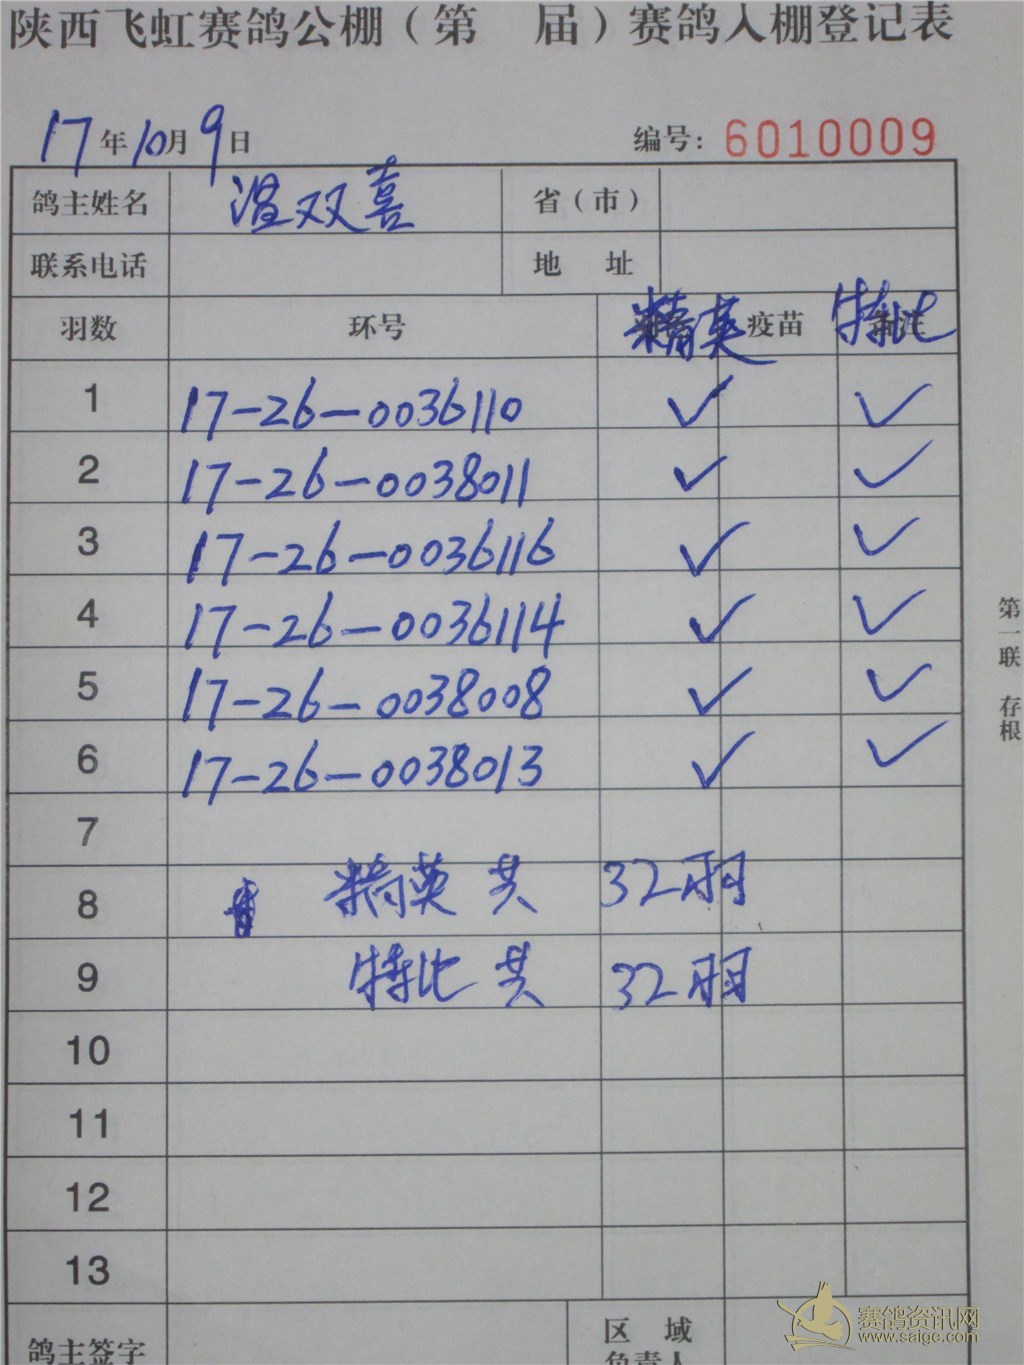 陕西飞虹赛鸽公棚（第 届）赛鸽入棚登记表
17年10月9日 编号：6010009
鸽主姓名 温双喜 省（市）
联系电话 地 址
羽数 环号 精英 疫苗 特比
1 17-26-0036110 ✓ ✓
2 17-26-0038011 ✓ ✓
3 17-26-0036116 ✓ ✓
4 17-26-0036114 ✓ ✓
5 17-26-0038008 ✓ ✓
6 17-26-0038013 ✓ ✓
7
8 精英 共 32羽
9 特比 共 32羽
10
11
12
13
鸽主签字 区 域
负责人
第一联 存根
赛鸽资讯网
www.saige.com